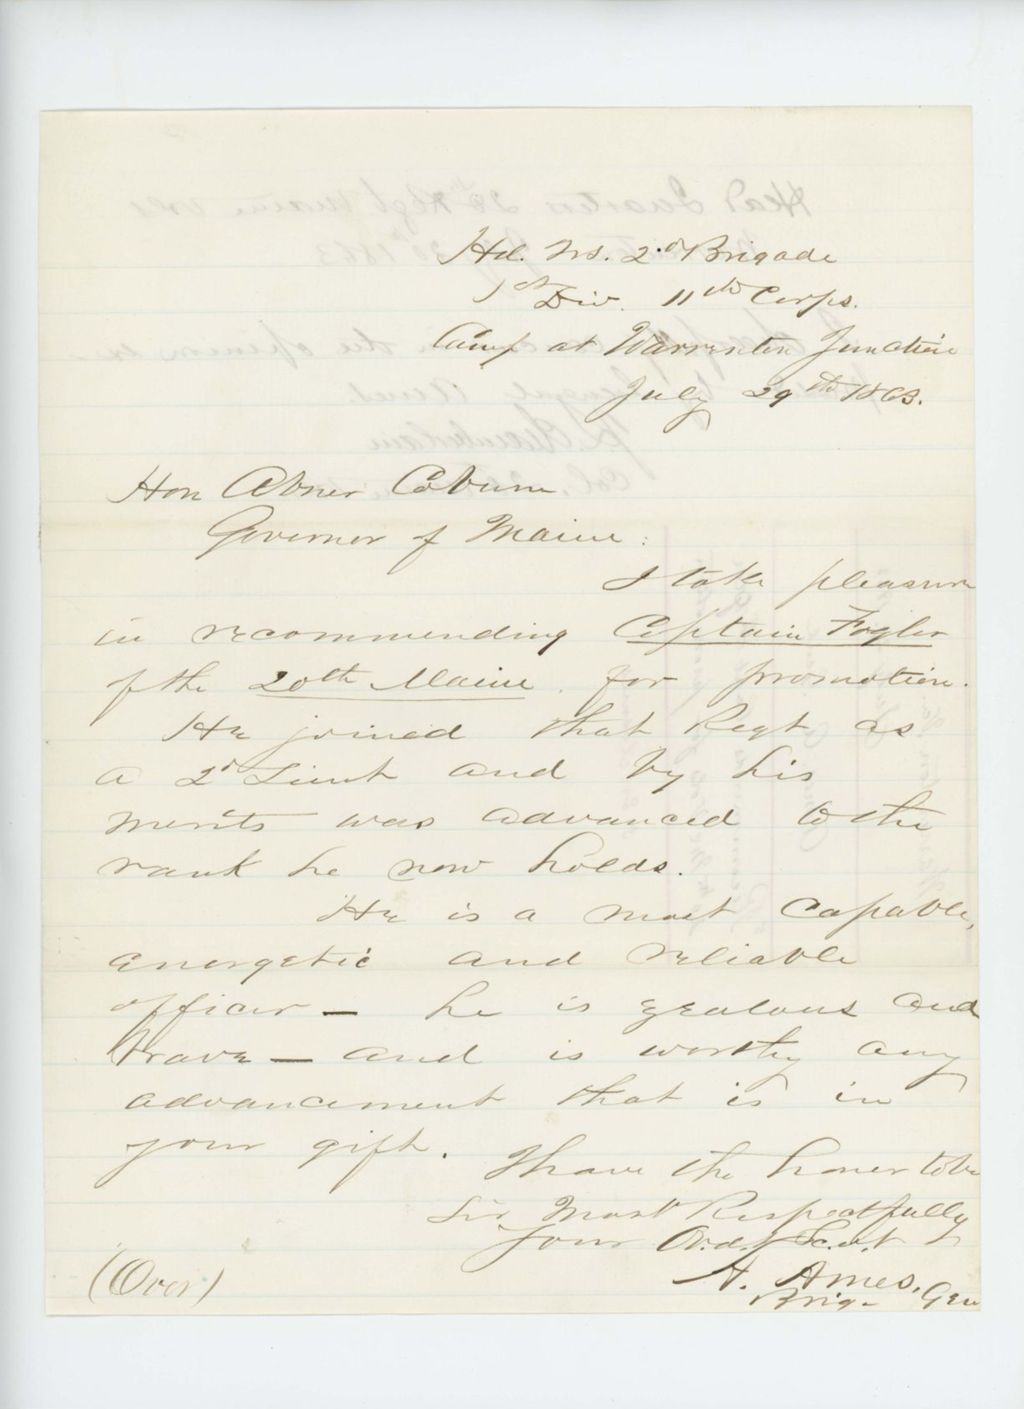 Hd. Qrs. 2d Brigade
1st Div. 11th Corps.
Camp at Warrenton Junction
July 29th 1863.
Hon Abner Coburn
Governor of Maine:
I take pleasure
in recommending Captain Fogler
of the 20th Maine for promotion.
He joined that Regt as
a 2d Lieut and by his
merits was advanced to the
rank he now holds.
He is a most capable,
energetic and reliable
officer — he is zealous and
brave — and is worthy any
advancement that is in
your gift.
I have the honor to be
Sir Most Respectfully
Your Obdt Servt
A. Ames.
Brig- Gen
(Over)